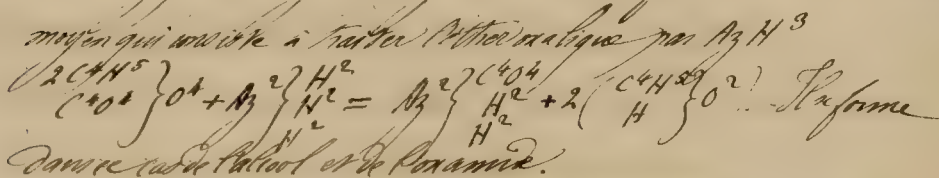 moyen qui consiste à traiter l'éther oxalique par AzH³
2C⁴H⁵ C⁴O⁴ } O⁴ + Az² } H² H² H² = Az² } C⁴O⁴ H² H² + 2 ( C⁴H⁵ H } O² ). Il se forme
dans ce cas de l'alcool et de l'oxamide.